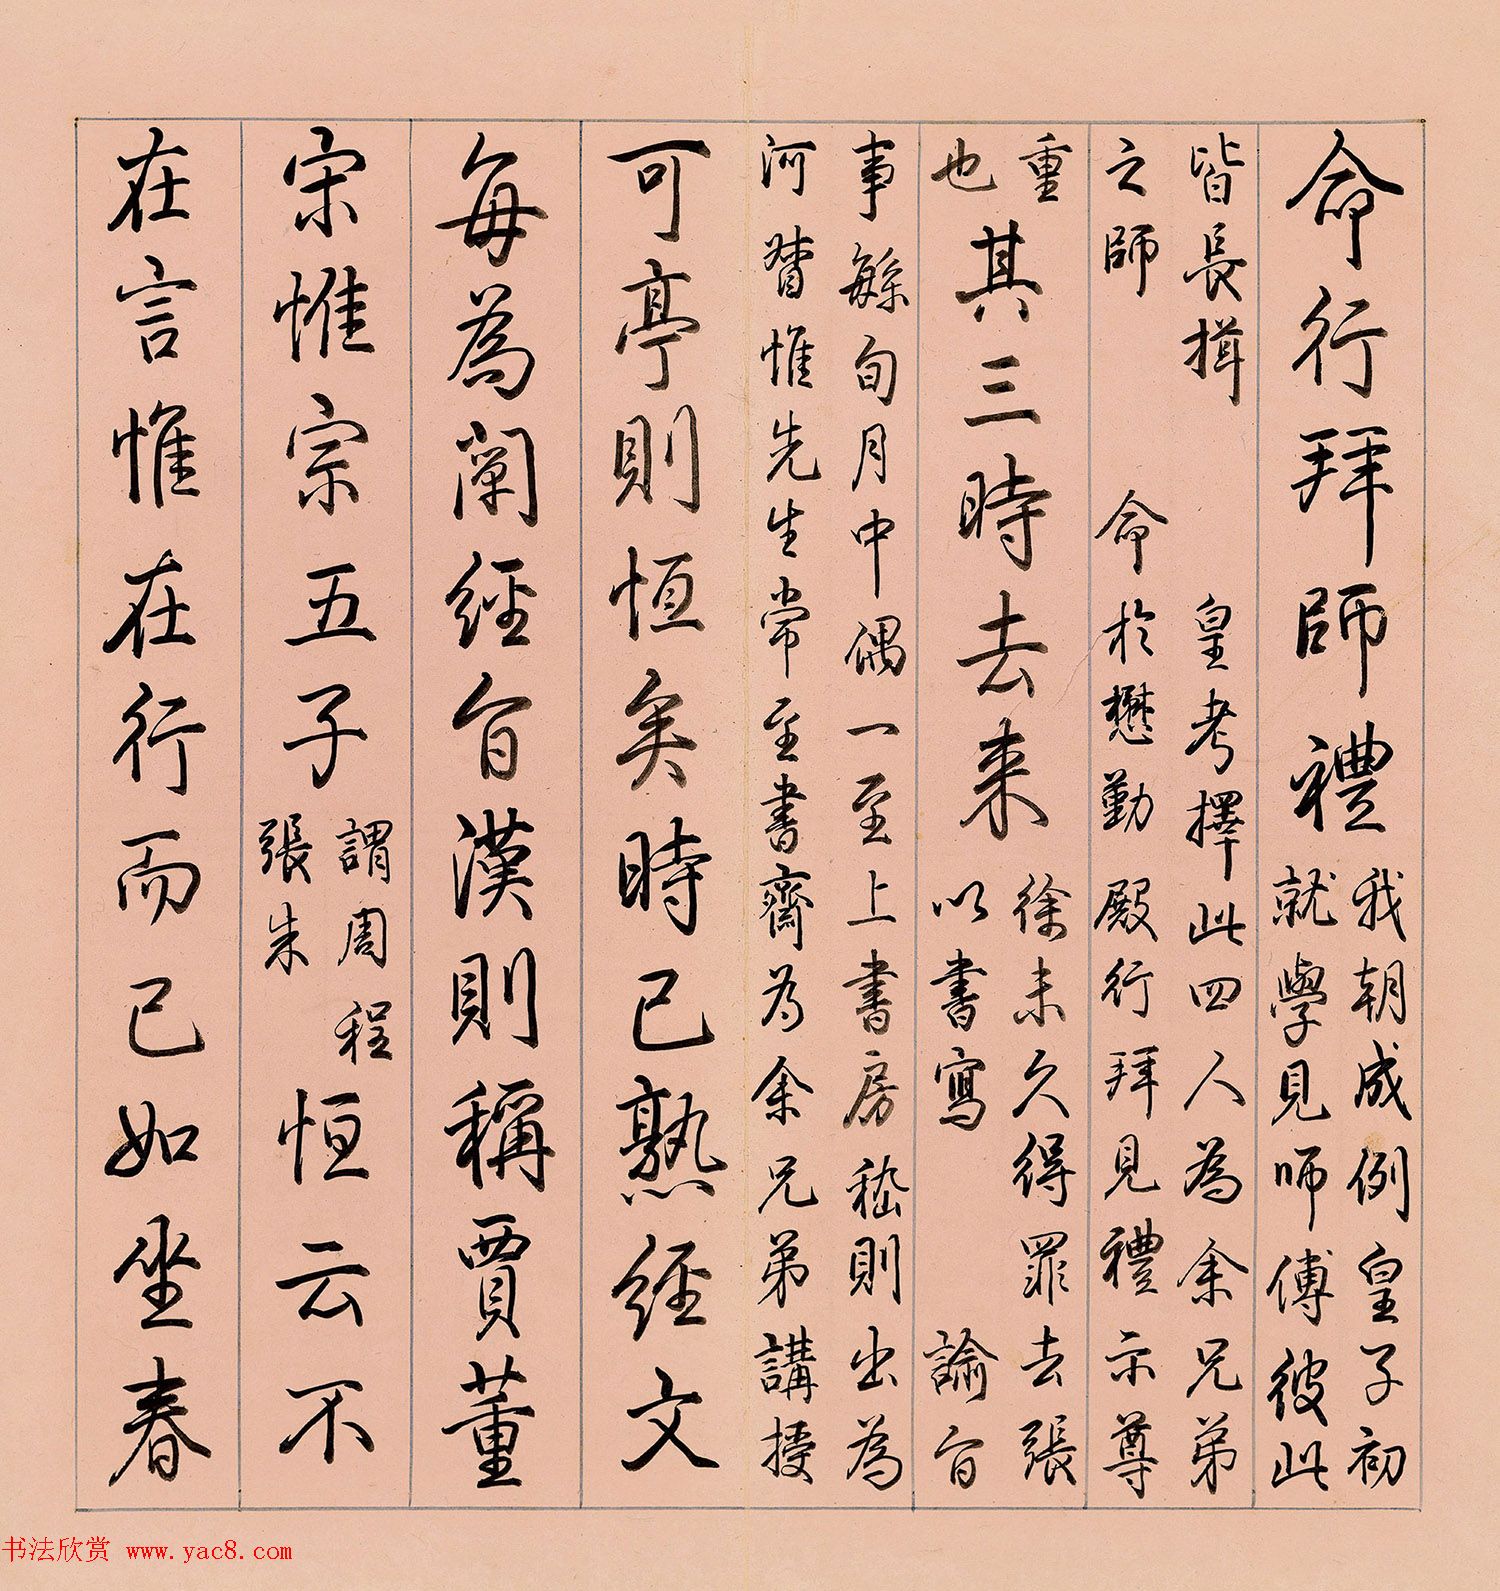 命行拜師禮我朝成例皇子初
就學見師傅彼此
皆長揖 皇考擇此四人為余兄弟
之師 命於懋勤殿行拜見禮示尊
重
也
其三時去来徐未久得罪去張
以書寫 諭旨
事緐旬月中偶一至上書房嵇則出為
河督惟先生常至書齋為余兄弟講授
可亭則恒矣時已熟經文
每為闡經旨漢則稱賈董
宋惟宗五子謂周程
張朱
恒云不
在言惟在行而已如坐春
书法欣赏 www.yac8.com